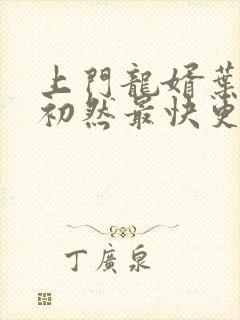 上門龍婿葉
初然最快更
丁廣泉